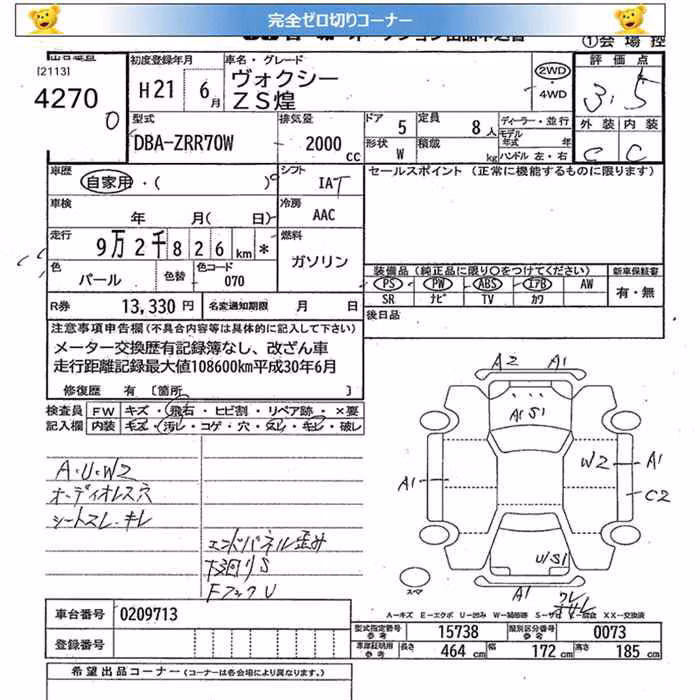 完全ゼロ切りコーナー
①会場控
[2113]
4270
0
初度登録年月
H21 6月
車名・グレード
ヴォクシー
ZS煌
2WD
・4WD
評価点
3.5
型式
DBA-ZRR70W
排気量
2000 cc
ドア 5
定員 8人
形状 W
積載 kg
ディーラー・並行
モデル年式 年
ハンドル 左・右
外装 内装
C C
車歴
自家用・( )
シフト
IAT
セールスポイント (正常に機能するものに限ります)
車検
年 月( 日)
冷房
AAC
走行
9万2千826km *
燃料
ガソリン
色
パール
色替
色コード
070
装備品 (純正品に限り○をつけてください)
PS PW ABS エアB AW
SR ナビ TV カワ
新車保証書
有・無
R券 13,330円
名変通知期限 月 日
後日品
注意事項申告欄 (不具合内容等は具体的に記入して下さい)
メーター交換歴有記録簿なし、改ざん車
走行距離記録最大値108600km平成30年6月
修復歴 有 [箇所 ]
検査員 FW キズ・飛石・ヒビ割・リペア跡・×要
記入欄 内装 キズ・汚レ・コゲ・穴・スレ・キレ・破レ
A・U・W2
オーディオレス穴
シートスレ・キレ
エンドパネル歪み
下廻りS
FフックU
A2 A1
A1 S1
A1
W2 A1
C2
U/S1
A1
スペア
A-キズ E-エクボ U-凹み W-補修跡 S-サビ XX-交換済
車台番号 0209713
登録番号
型式指定番号 参考 15738
類別区分番号 参考 0073
車庫証明用 参考 長さ 464cm 幅 172cm 高さ 185cm
希望出品コーナー (コーナーは各会場により異なります。)